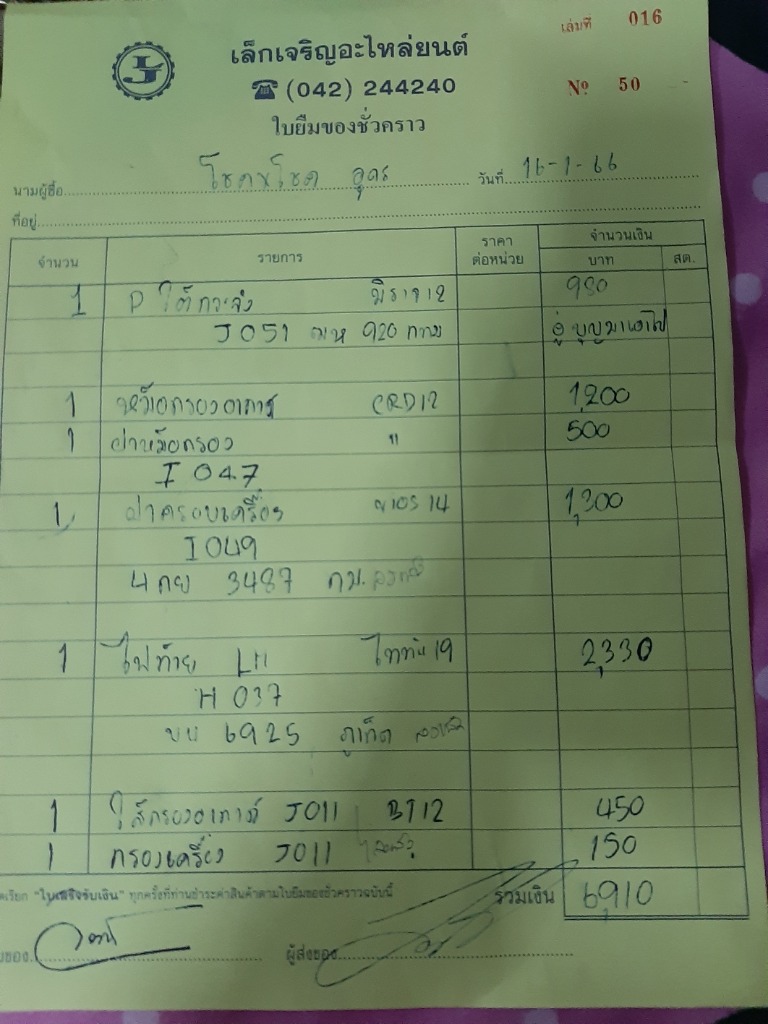 เล่มที่ 016
เล็กเจริญอะไหล่ยนต์
☎ (042) 244240
Nº 50
ใบยืมของชั่วคราว
นามผู้ซื้อ โชคชโชค อุดร วันที่ 16-1-66
ที่อยู่
จำนวน รายการ ราคาต่อหน่วย จำนวนเงิน
บาท สต.
1 P ใต้กระจัง มิราจ 12 980
J051 920 อู่ บุญมาเอาไป
1 หม้อกรองอากาศ CRD12 1,200
1 ฝาหม้อกรอง " 500
I 047
1 ฝาครอบเครื่อง วีออส 14 1,300
I 049
4 กย 3487 กม.
1 ไฟท้าย LH ไททัน 19 2,330
H 037
บบ 6925 ภูเก็ต
1 ไส้กรองอากาศ J011 BT12 450
1 กรองเครื่อง J011 150
เรียก "ใบเสร็จรับเงิน" ทุกครั้งที่ท่านชำระค่าสินค้าตามใบยืมของชั่วคราวฉบับนี้ รวมเงิน 6,910
ของ ผู้ส่งของ